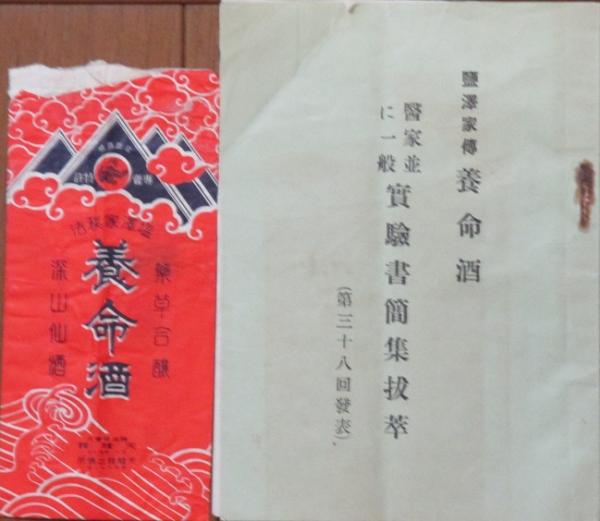 鹽澤家傳 養命酒
醫家並に一般 實驗書簡集拔萃
(第三十八回發表)、
專賣特許
鹽澤家秘法
藥草合釀
養命酒
深山仙酒